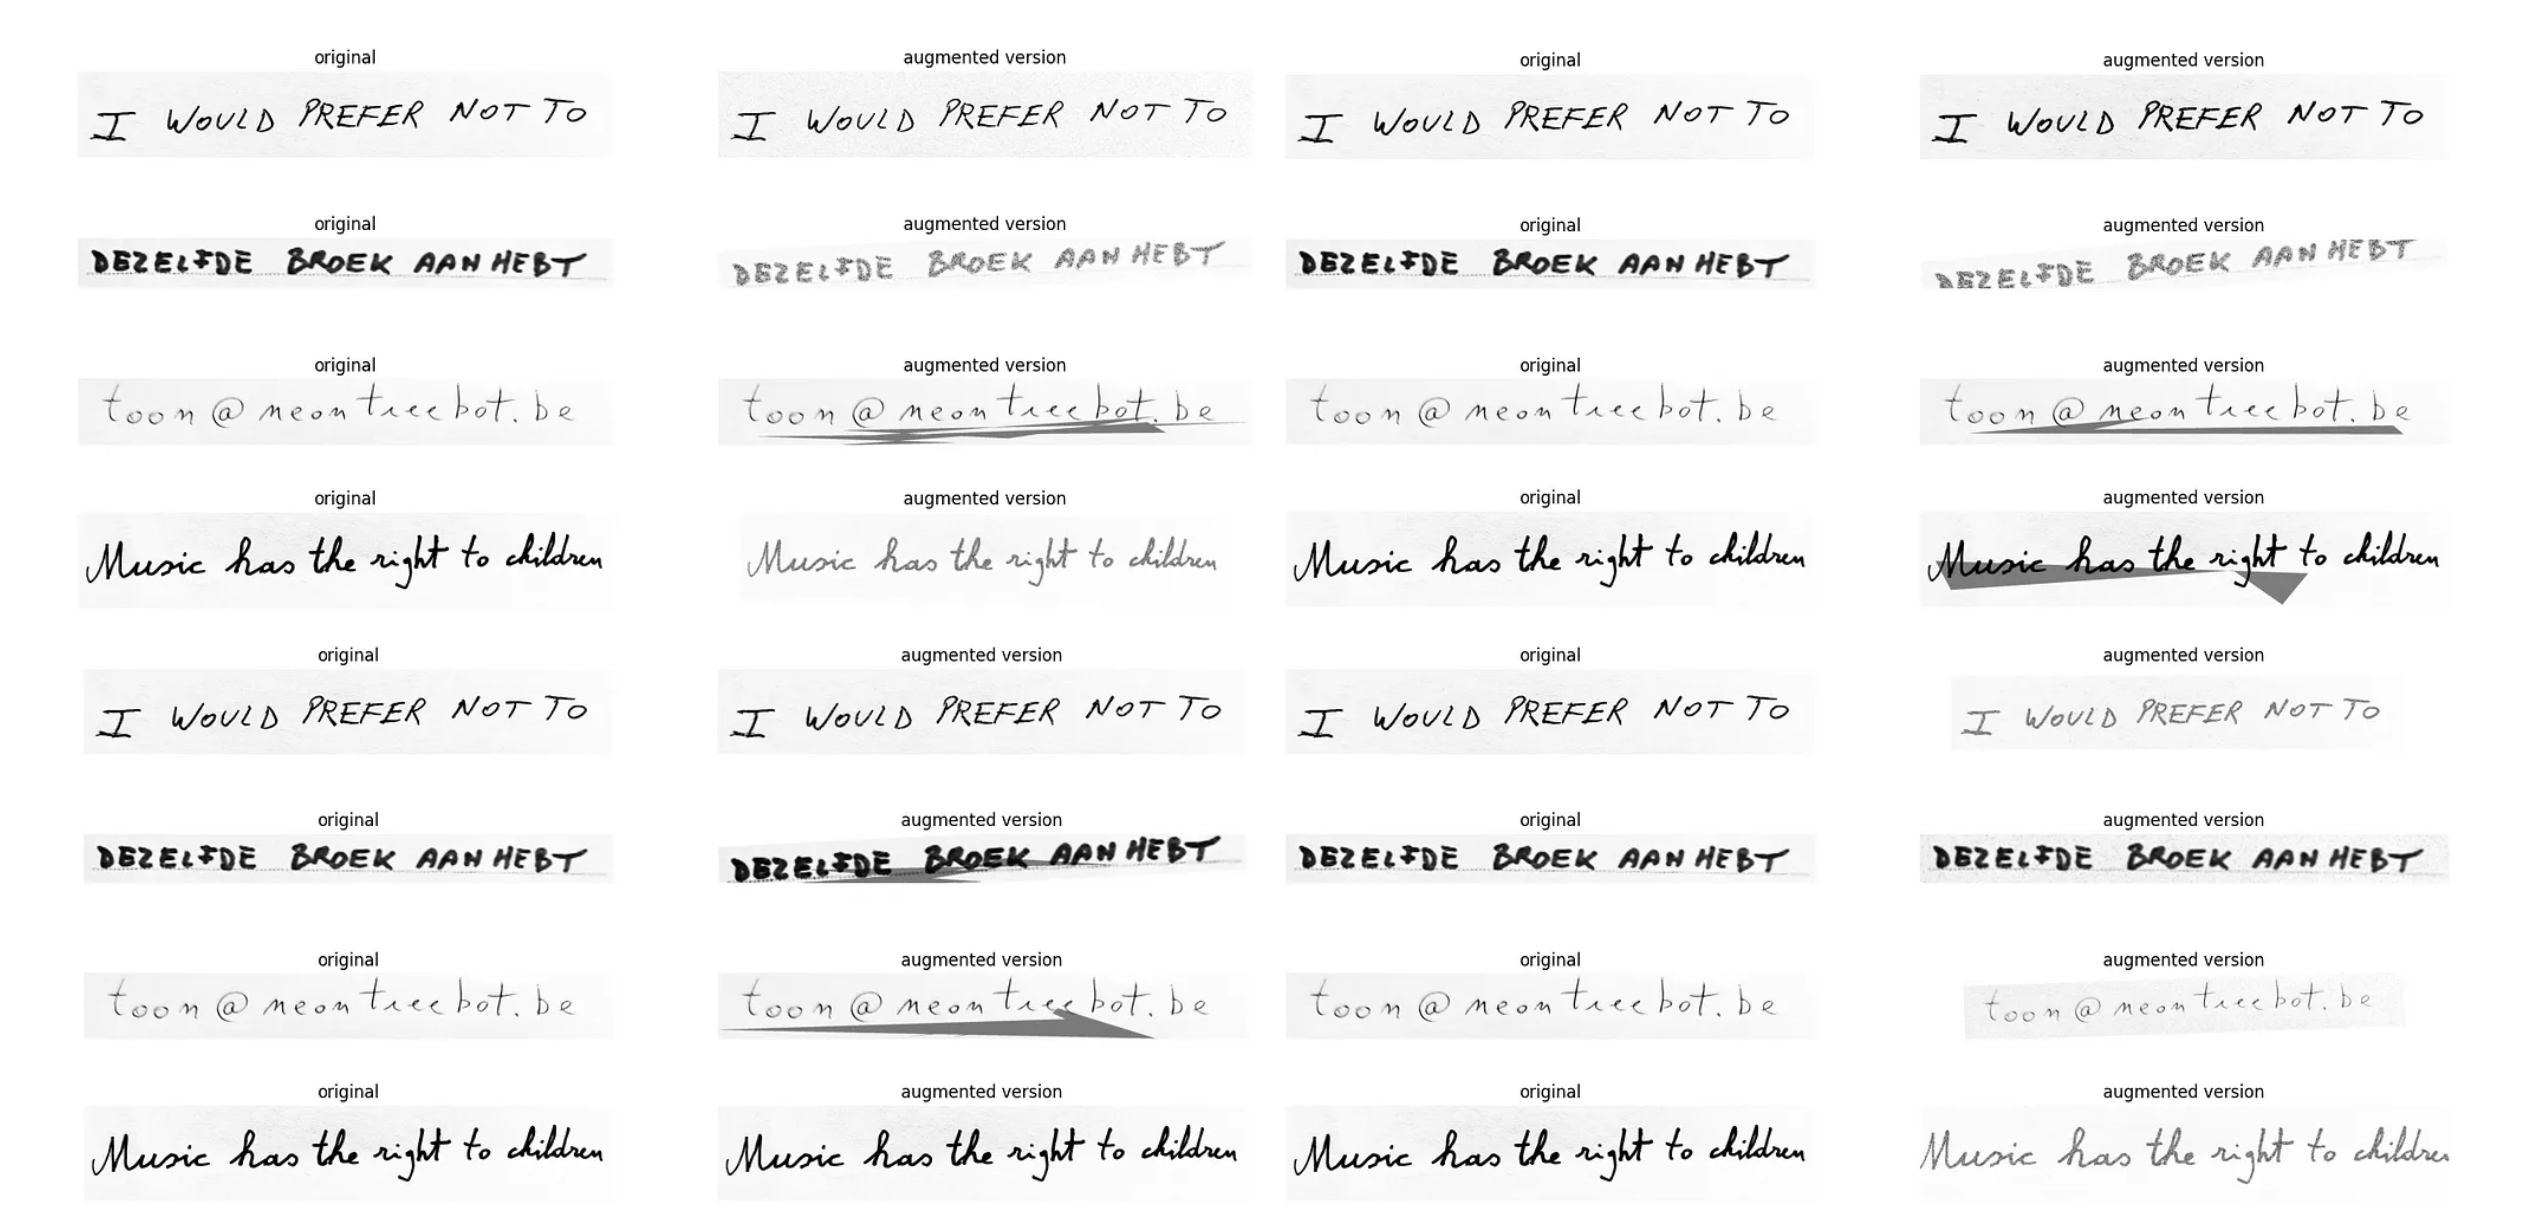 original augmented version original augmented version
I WOULD PREFER NOT TO I WOULD PREFER NOT TO I WOULD PREFER NOT TO I WOULD PREFER NOT TO
original augmented version original augmented version
DEZELFDE BROEK AAN HEBT DEZELFDE BROEK AAN HEBT DEZELFDE BROEK AAN HEBT DEZELFDE BROEK AAN HEBT
original augmented version original augmented version
toon@neontreebot.be toon@neontreebot.be toon@neontreebot.be toon@neontreebot.be
original augmented version original augmented version
Music has the right to children Music has the right to children Music has the right to children Music has the right to children
original augmented version original augmented version
I WOULD PREFER NOT TO I WOULD PREFER NOT TO I WOULD PREFER NOT TO I WOULD PREFER NOT TO
original augmented version original augmented version
DEZELFDE BROEK AAN HEBT DEZELFDE BROEK AAN HEBT DEZELFDE BROEK AAN HEBT DEZELFDE BROEK AAN HEBT
original augmented version original augmented version
toon@neontreebot.be toon@neontreebot.be toon@neontreebot.be toon@neontreebot.be
original augmented version original augmented version
Music has the right to children Music has the right to children Music has the right to children Music has the right to children